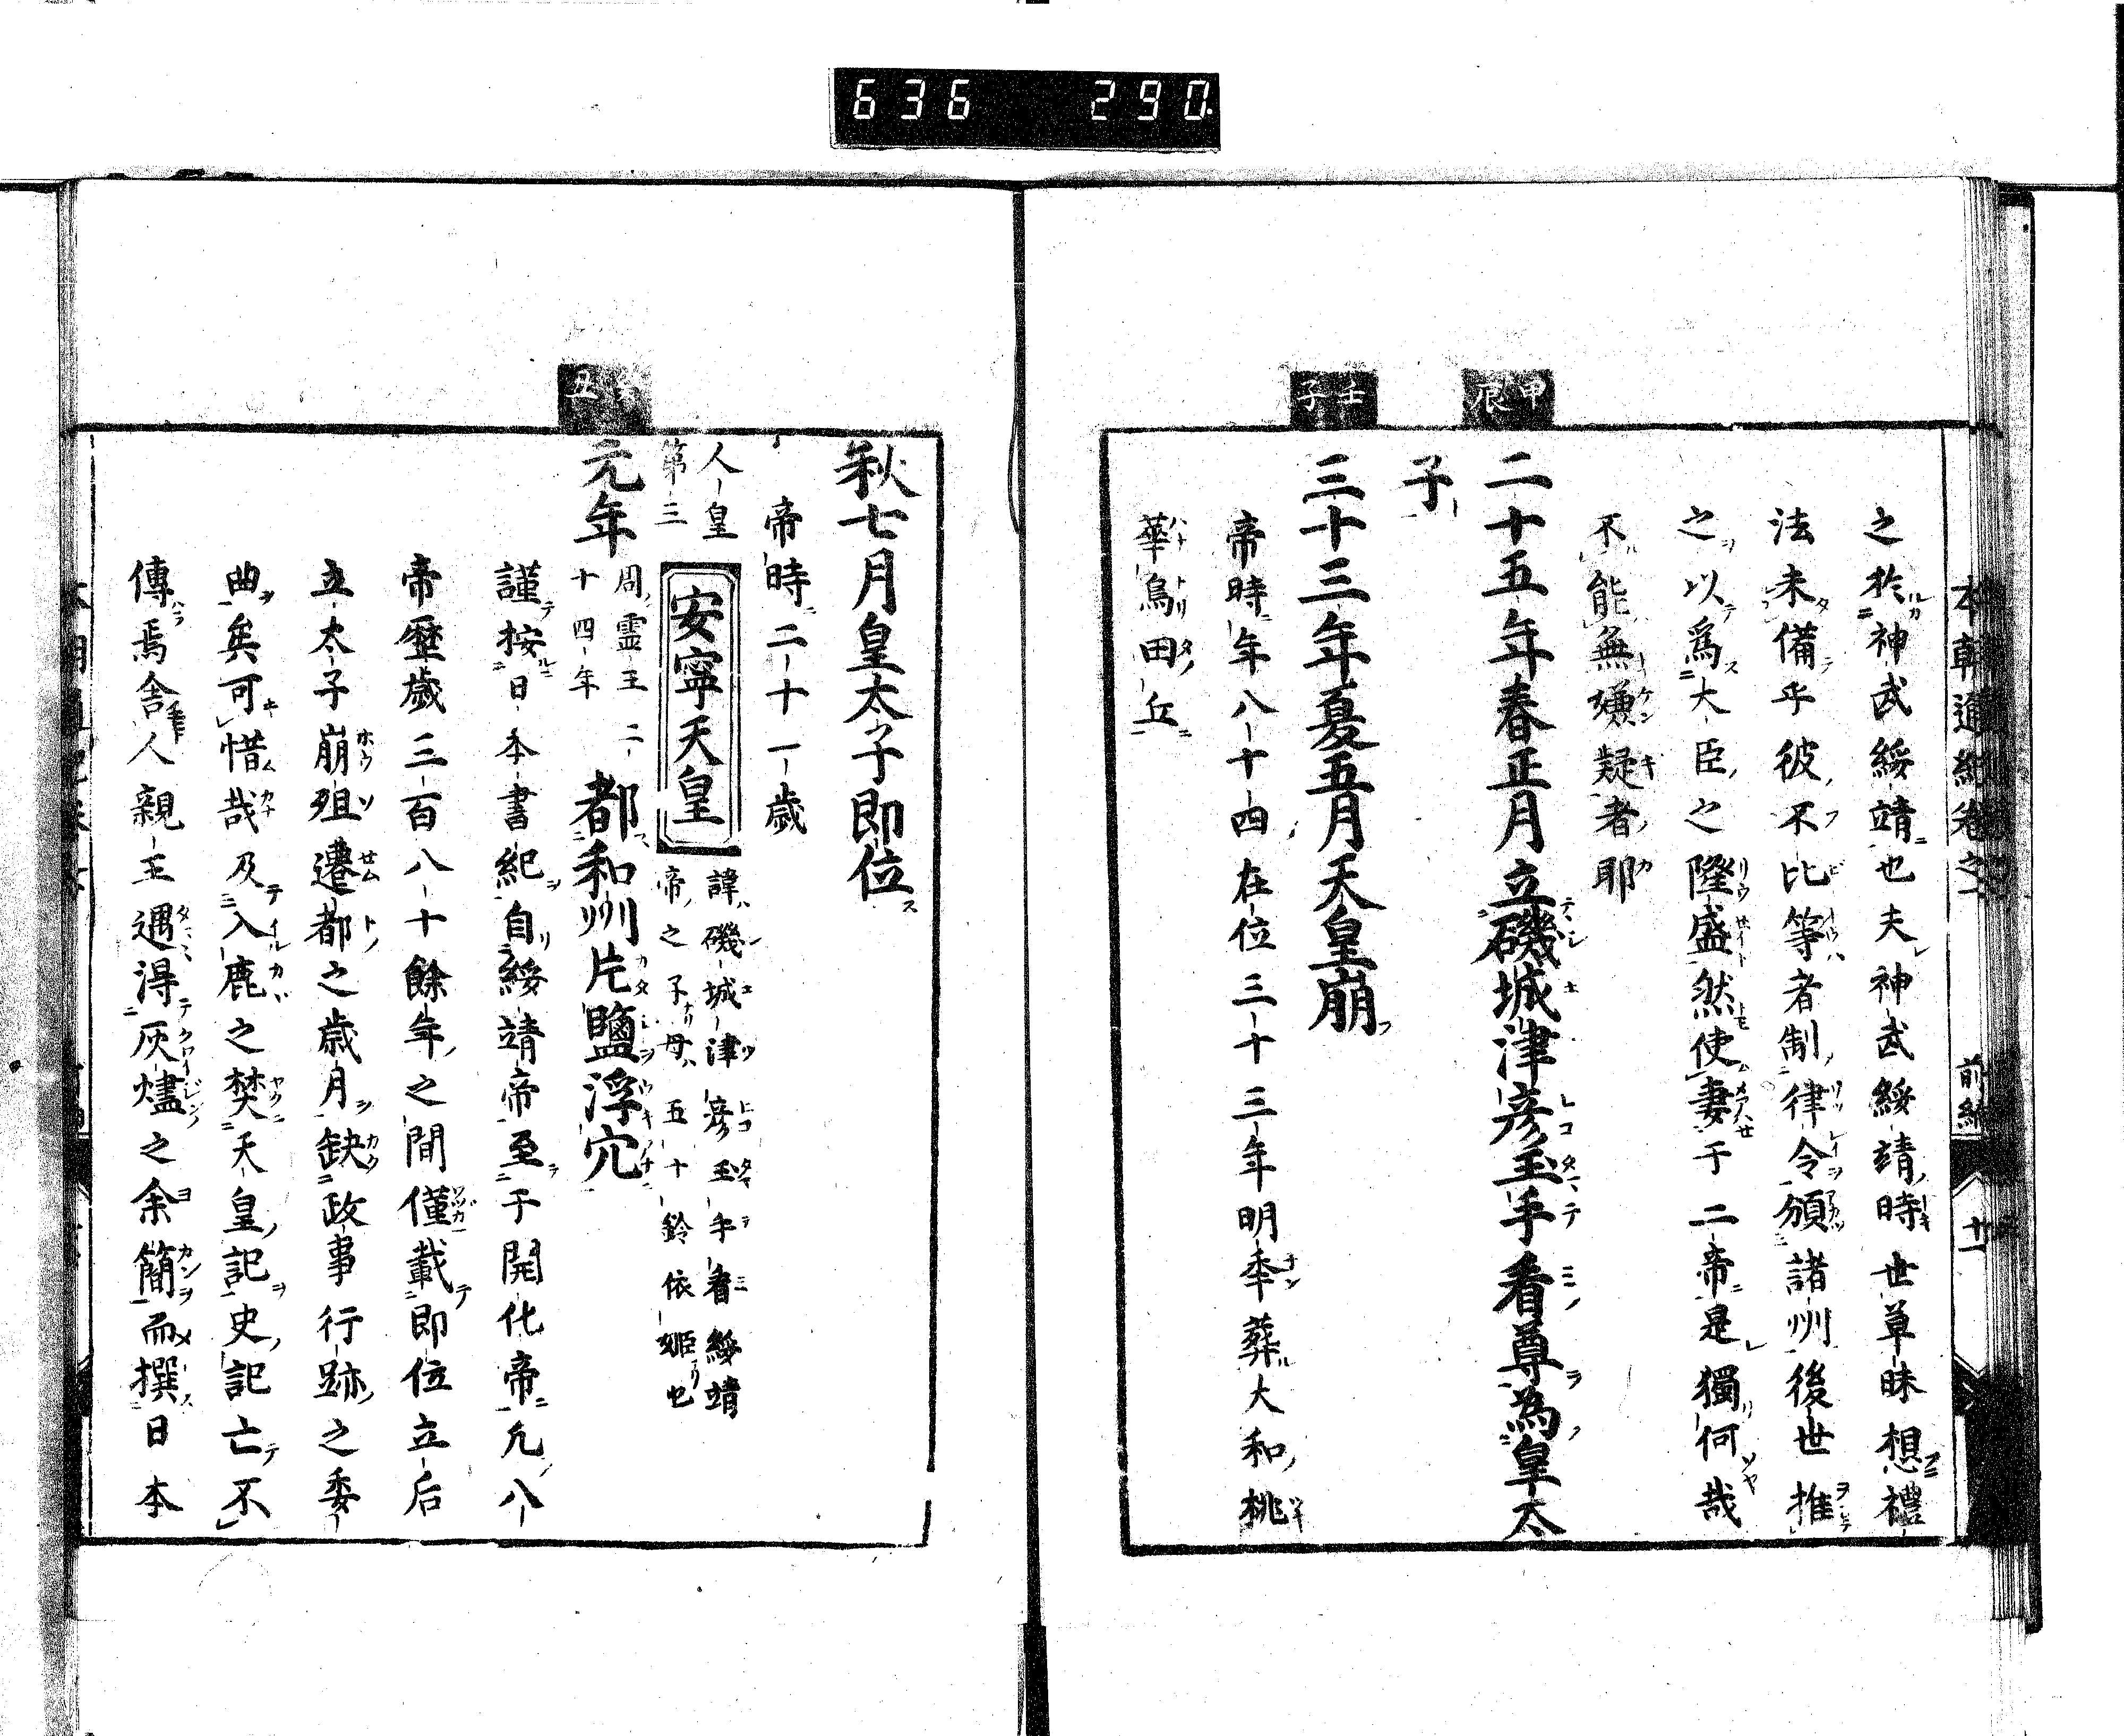 636 290
本朝通紀卷之一 前編 十一
之於神武綏靖也夫神武綏靖時世草昧想禮
法未備乎彼不比等者制律令頒諸州後世推
之以爲大臣之隆盛然使妻于二帝是獨何哉
不能無嫌疑者耶
甲辰
二十五年春正月立磯城津彦玉手看尊為皇太
子
壬子
三十三年夏五月天皇崩
帝時年八十四在位三十三年明年葬大和桃
華鳥田丘
秋七月皇太子即位
帝時二十一歳
人皇
第三
安寧天皇
諱磯城津彦玉手看綏靖
帝之子母五十鈴依姫也
癸丑
元年
周霊王二
十四年
都和州片鹽浮穴
謹按日本書紀自綏靖帝至于開化帝凡八
帝歴歳三百八十餘年之間僅載即位立后
立太子崩殂遷都之歳月缺政事行跡之委
曲矣可惜哉及入鹿之焚天皇記史記亡不
傳焉舎人親王遇得灰燼之余簡而撰日本